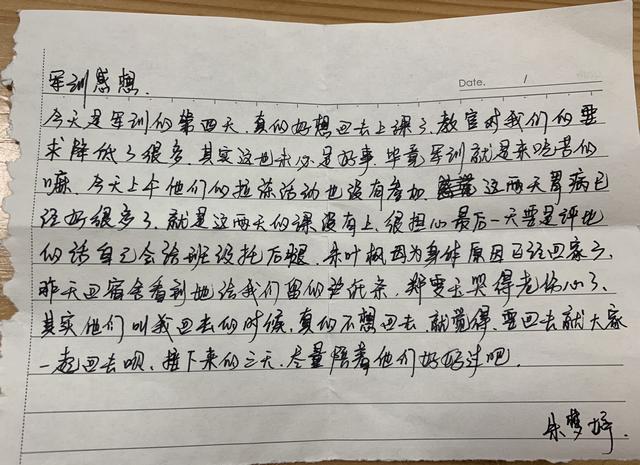 军训感想.
Date. /
今天是军训的第四天,真的好想回去上课了.教官对我们的要
求降低了很多.其实这也未必是好事.毕竟军训就是来吃苦的
嘛.今天上午他们的拉练活动也没有参加.这两天胃病已
经好很多了.就是这两天的课没有上.很担心最后一天要是评比
的话自己会给班级托后腿.朱叶枫因为身体原因已经回家了.
昨天回宿舍看到她给我们留的纸条.郑雯哭得老伤心了.
其实他们叫我回去的时候,真的不想回去.就觉得.要回去就大家
一起回去呗.接下来的三天.尽量陪着他们好好过吧.
朱梦婷.